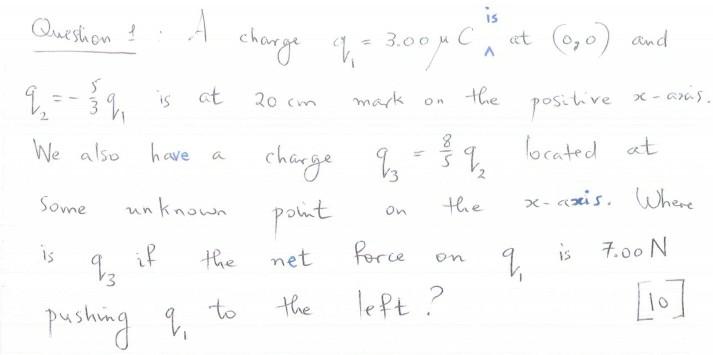 Question 1 : A charge q₁ = 3.00 μC is at (0,0) and
q₂ = -5/3 q₁ is at 20 cm mark on the positive x-axis.
We also have a charge q₃ = 8/5 q₂ located at
some unknown point on the x-axis. Where
is q₃ if the net force on q₁ is 7.00 N
pushing q₁ to the left? [10]